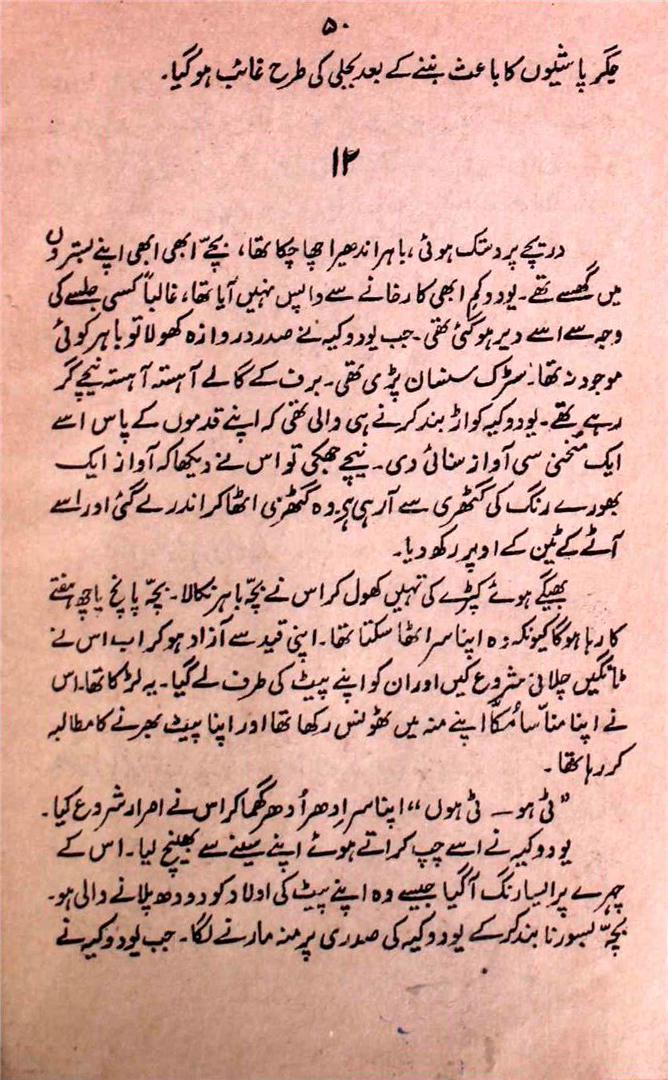 ۵۰
جگر پاشیوں کا باعث بننے کے بعد بجلی کی طرح غائب ہو گیا۔
۱۲
دریچے پر دستک ہوئی، باہر اندھیرا چھا چکا تھا، بچّے ابھی ابھی اپنے بستروں
میں گھسے تھے۔ یودوکم ابھی کارخانے سے واپس نہیں آیا تھا، غالباً کسی جلسے کی
وجہ سے اسے دیر ہو گئی تھی۔ جب یودوکیہ نے صدر دروازہ کھولا تو باہر کوئی
موجود نہ تھا۔ سڑک سنسان پڑی تھی۔ برف کے گالے آہستہ آہستہ نیچے گر
رہے تھے۔ یودوکیہ کواڑ بند کرنے ہی والی تھی کہ اپنے قدموں کے پاس اسے
ایک مُنخنی سی آواز سنائی دی۔ نیچے جھکی تو اس نے دیکھا کہ آواز ایک
بھورے رنگ کی گٹھری سے آ رہی ہے۔ وہ گٹھری اٹھا کر اندر لے گئی اور اسے
آٹے کے ٹین کے اوپر رکھ دیا۔
بھیگے ہوئے کپڑے کی تہیں کھول کر اس نے بچّہ باہر نکالا۔ بچّہ پانچ یا چھ ہفتے
کا رہا ہوگا کیونکہ وہ اپنا سر اٹھا سکتا تھا۔ اپنی قید سے آزاد ہو کر اب اس نے
ٹانگیں چلانی شروع کیں اور ان کو اپنے پیٹ کی طرف لے گیا۔ یہ لڑکا تھا۔ اس
نے اپنا منّا سا مُکّا اپنے منہ میں ٹھونس رکھا تھا اور اپنا پیٹ بھرنے کا مطالبہ
کر رہا تھا۔
”ٹی ہو — ٹی ہوں“ اپنا سر اِدھر اُدھر گھما کر اس نے اصرار شروع کیا۔
یودوکیہ نے اسے چپ کراتے ہوئے اپنے سینے سے بھینچ لیا۔ اس کے
چہرے پر ایسا رنگ آ گیا جیسے وہ اپنے پیٹ کی اولاد کو دودھ پلانے والی ہو۔
بچّہ بسورنا بند کر کے یودوکیہ کی صدری پر منہ مارنے لگا۔ جب یودوکیہ نے